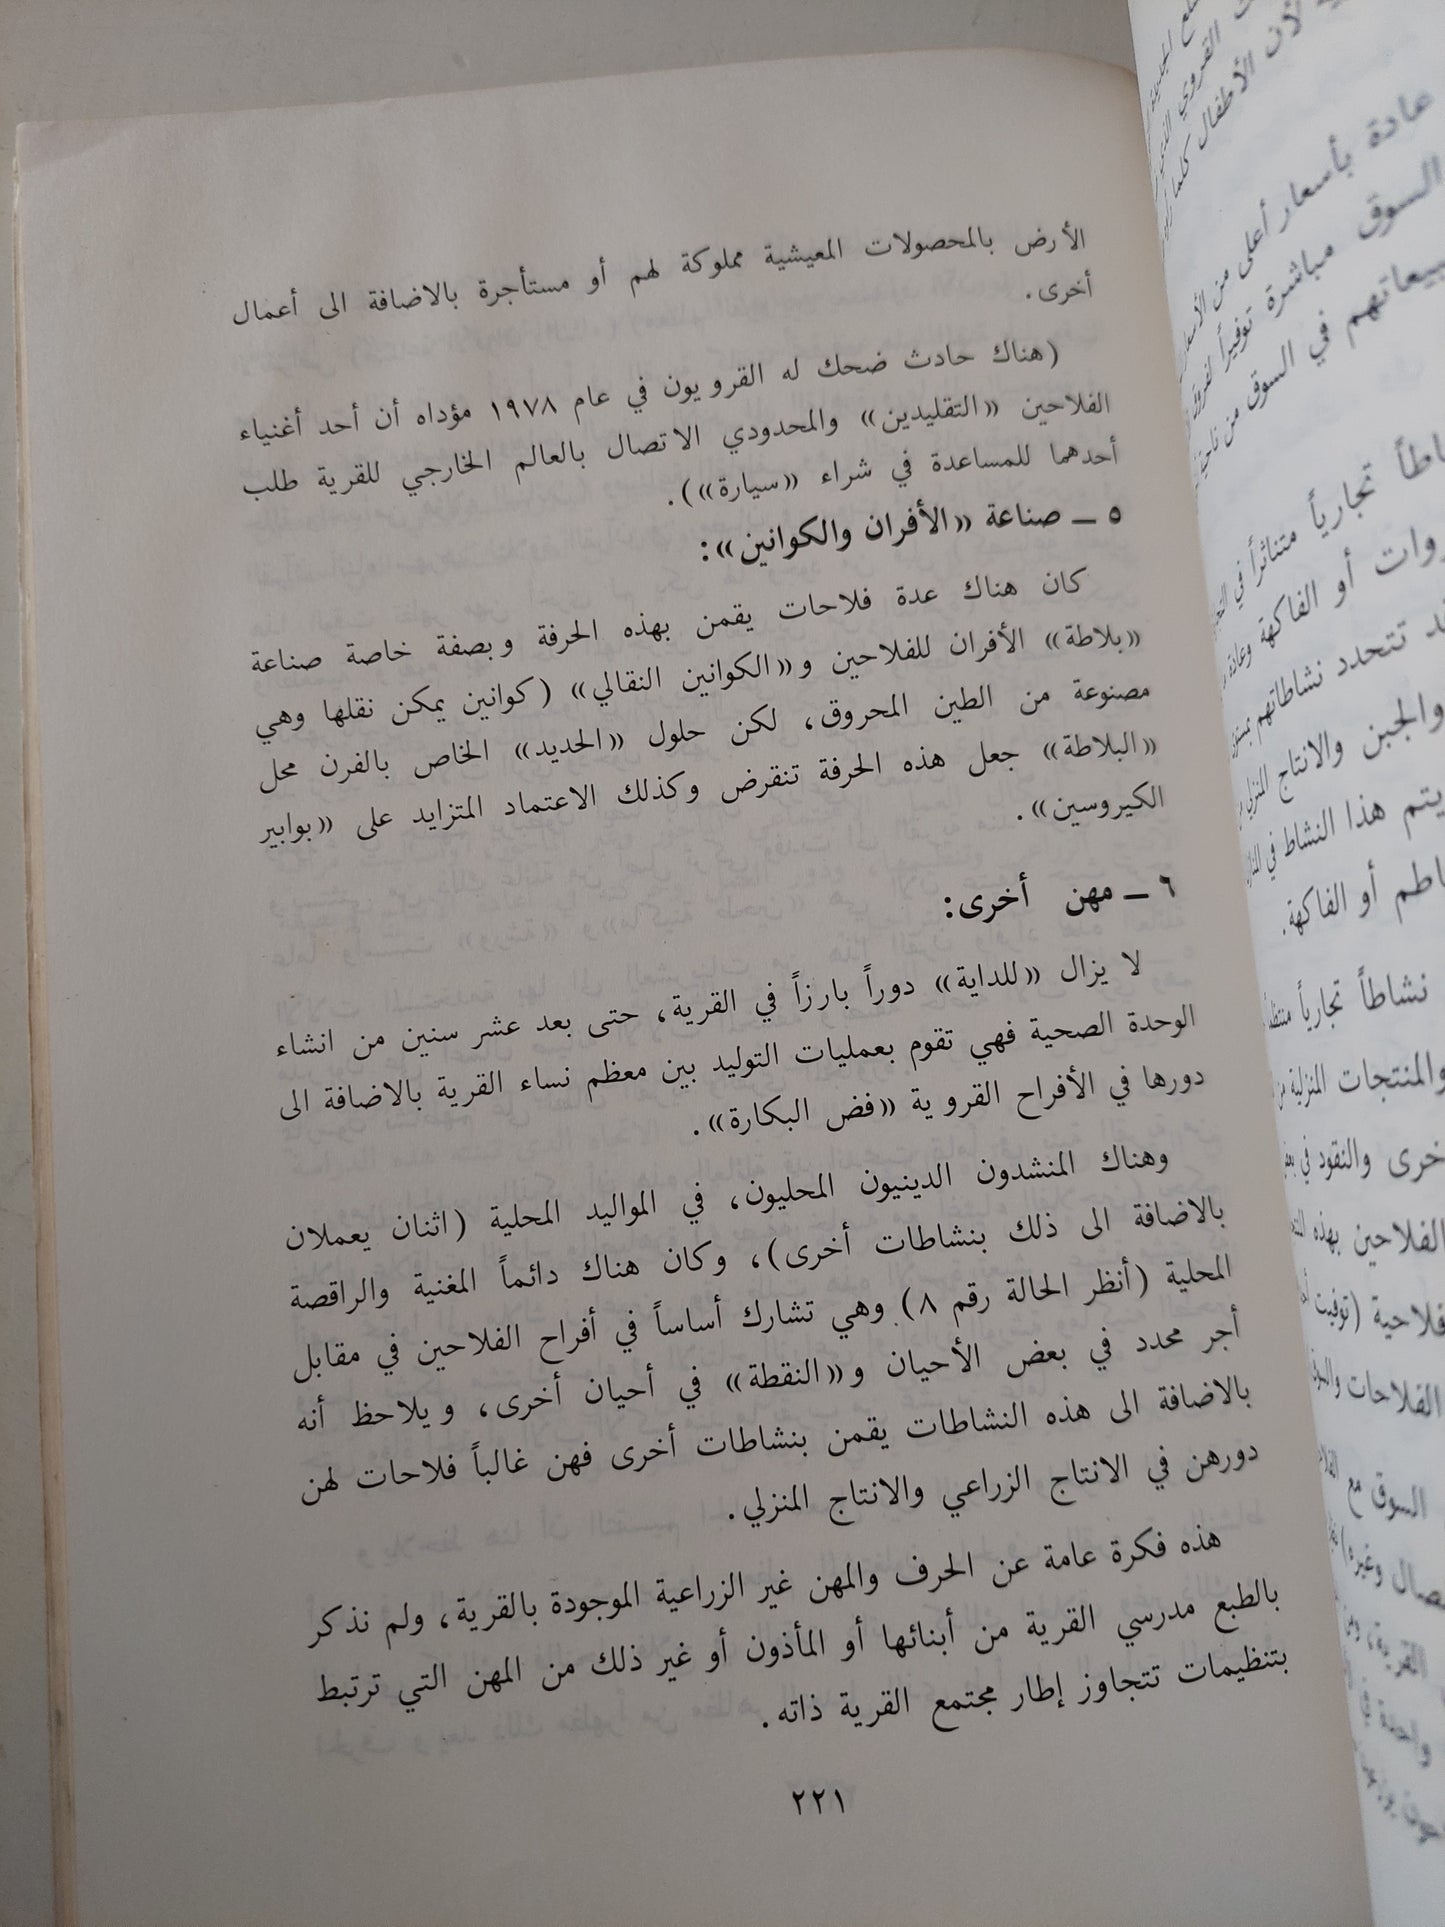 الأرض بالمحصولات المعيشية مملوكة لهم أو مستأجرة بالاضافة الى أعمال
أخرى.
(هناك حادث ضحك له القرويون في عام ١٩٧٨ مؤداه أن أحد أغنياء
الفلاحين «التقليدين» والمحدودي الاتصال بالعالم الخارجي للقرية طلب
أحدهما للمساعدة في شراء «سيارة»).
٥ ــ صناعة «الأفران والكوانين»:
كان هناك عدة فلاحات يقمن بهذه الحرفة وبصفة خاصة صناعة
«بلاطة» الأفران للفلاحين و«الكوانين النقالي» (كوانين يمكن نقلها وهي
مصنوعة من الطين المحروق، لكن حلول «الحديد» الخاص بالفرن محل
«البلاطة» جعل هذه الحرفة تنقرض وكذلك الاعتماد المتزايد على «بوابير
الكيروسين».
٦ ــ مهن أخرى:
لا يزال «للداية» دوراً بارزاً في القرية، حتى بعد عشر سنين من انشاء
الوحدة الصحية فهي تقوم بعمليات التوليد بين معظم نساء القرية بالاضافة الى
دورها في الأفراح القروية «فض البكارة».
وهناك المنشدون الدينيون المحليون، في المواليد المحلية (اثنان يعملان
بالاضافة الى ذلك بنشاطات أخرى)، وكان هناك دائماً المغنية والراقصة
المحلية (أنظر الحالة رقم ٨) وهي تشارك أساساً في أفراح الفلاحين في مقابل
أجر محدد في بعض الأحيان و«النقطة» في أحيان أخرى، ويلاحظ أنه
بالاضافة الى هذه النشاطات يقمن بنشاطات أخرى فهن غالباً فلاحات لهن
دورهن في الانتاج الزراعي والانتاج المنزلي.
هذه فكرة عامة عن الحرف والمهن غير الزراعية الموجودة بالقرية، ولم نذكر
بالطبع مدرسي القرية من أبنائها أو المأذون أو غير ذلك من المهن التي ترتبط
بتنظيمات تتجاوز إطار مجتمع القرية ذاته.
٢٢١
القروي
لأن الأطفال كما
عادة بأسعار أعلى من
السوق مباشرة توفيراً
في السوق من
تجارياً متناثراً في
أو الفاكهة وعادة
تتحدد نشاطاتهم
والجبن والانتاج المنزلي
يتم هذا النشاط في
أو الفاكهة.
نشاطاً تجارياً
والمنتجات المنزلية من
والنقود في
الفلاحين بهذه
(توفيت
الفلاحات
السوق مع
وغيره)